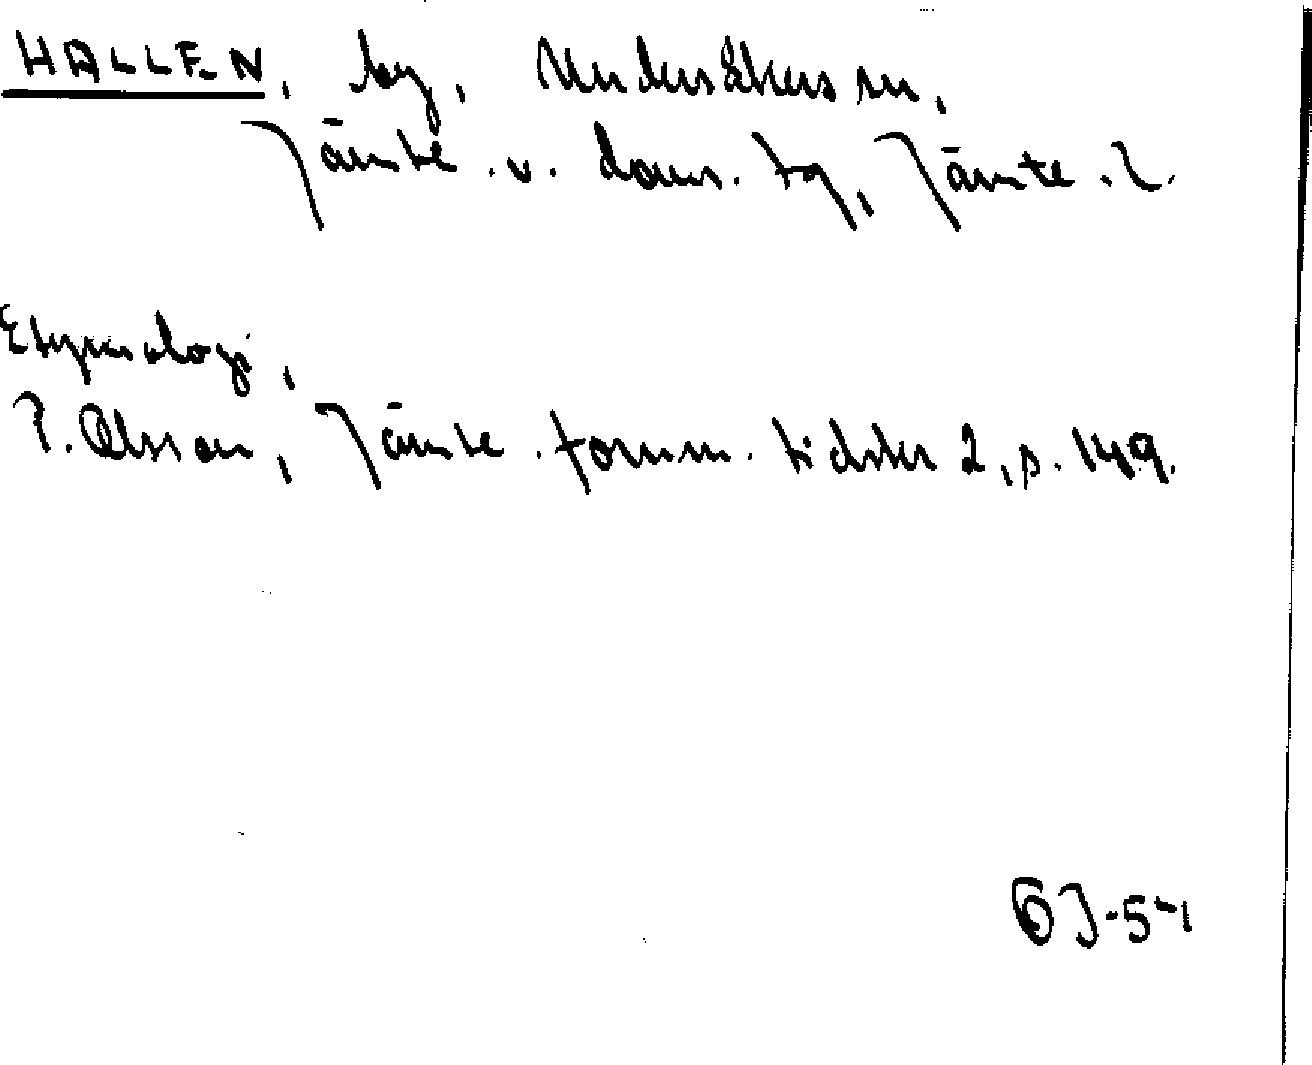 HALLEN, by, Undersåkers sn,
Jämtl. v. doms. tg, Jämtl. l.
Etymologi,
P. Olsson, Jämtl. fornm. tidskr 2, s. 149.